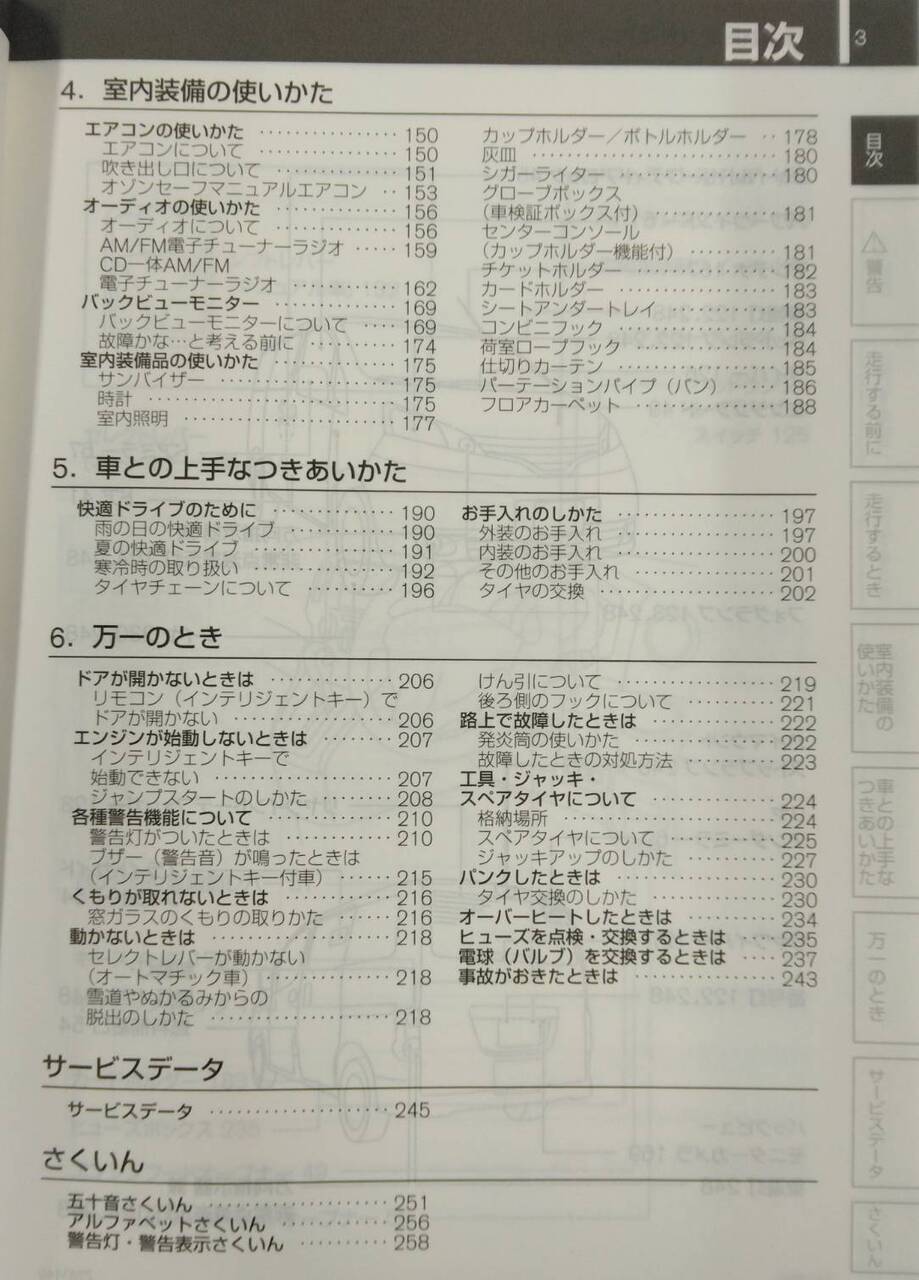 目次
3
4．室内装備の使いかた
エアコンの使いかた ················ 150
エアコンについて ················ 150
吹き出し口について ················ 151
オゾンセーフマニュアルエアコン ·· 153
オーディオの使いかた ·············· 156
オーディオについて ················ 156
AM/FM電子チューナーラジオ ····· 159
CD一体AM/FM
電子チューナーラジオ ············ 162
バックビューモニター ·············· 169
バックビューモニターについて ···· 169
故障かな…と考える前に ·········· 174
室内装備品の使いかた ·············· 175
サンバイザー ···················· 175
時計 ·························· 175
室内照明 ······················ 177
カップホルダー／ボトルホルダー ·· 178
灰皿 ·························· 180
シガーライター ·················· 180
グローブボックス
（車検証ボックス付） ·············· 181
センターコンソール
（カップホルダー機能付） ·········· 181
チケットホルダー ················ 182
カードホルダー ·················· 183
シートアンダートレイ ·············· 183
コンビニフック ·················· 184
荷室ロープフック ················ 184
仕切りカーテン ·················· 185
パーテーションパイプ（バン） ····· 186
フロアカーペット ················ 188
5．車との上手なつきあいかた
快適ドライブのために ·············· 190
雨の日の快適ドライブ ············ 190
夏の快適ドライブ ················ 191
寒冷時の取り扱い ················ 192
タイヤチェーンについて ·········· 196
お手入れのしかた ·················· 197
外装のお手入れ ·················· 197
内装のお手入れ ·················· 200
その他のお手入れ ················ 201
タイヤの交換 ···················· 202
6．万一のとき
ドアが開かないときは ·············· 206
リモコン（インテリジェントキー）で
ドアが開かない ·················· 206
エンジンが始動しないときは ········ 207
インテリジェントキーで
始動できない ···················· 207
ジャンプスタートのしかた ········ 208
各種警告機能について ·············· 210
警告灯がついたときは ············ 210
ブザー（警告音）が鳴ったときは
（インテリジェントキー付車） ······ 215
くもりが取れないときは ············ 216
窓ガラスのくもりの取りかた ······ 216
動かないときは ···················· 218
セレクトレバーが動かない
（オートマチック車） ·············· 218
雪道やぬかるみからの
脱出のしかた ···················· 218
けん引について ·················· 219
後ろ側のフックについて ·········· 221
路上で故障したときは ·············· 222
発炎筒の使いかた ················ 222
故障したときの対処方法 ·········· 223
工具・ジャッキ・
スペアタイヤについて ·············· 224
格納場所 ······················ 224
スペアタイヤについて ············ 225
ジャッキアップのしかた ·········· 227
パンクしたときは ·················· 230
タイヤ交換のしかた ·············· 230
オーバーヒートしたときは ·········· 234
ヒューズを点検・交換するときは ···· 235
電球（バルブ）を交換するときは ···· 237
事故がおきたときは ················ 243
サービスデータ
サービスデータ ···················· 245
さくいん
五十音さくいん ···················· 251
アルファベットさくいん ············ 256
警告灯・警告表示さくいん ·········· 258
目次
警告
走行する前に
走行するとき
室内装備の
使いかた
車との上手な
つきあいかた
万一のとき
サービスデータ
さくいん